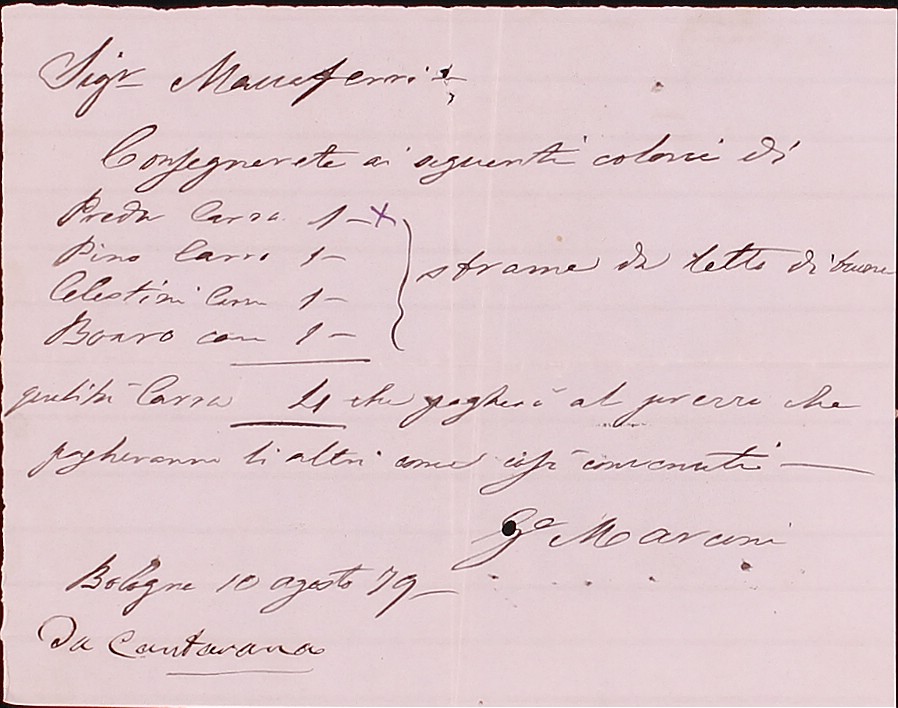 Sigr Maccaferri
Consegnerete ai seguenti coloni di
Preda Carra 1 - x
Pino Carra 1 -
Celestini Carra 1 -
Boaro carra 1 -
strame da letto di buona
qualità Carra 4 che pagherò al prezzo che
pagheranno li altri come così convenuti
Ge Marconi
Bologna 10 agosto 79 -
Da Cantavana